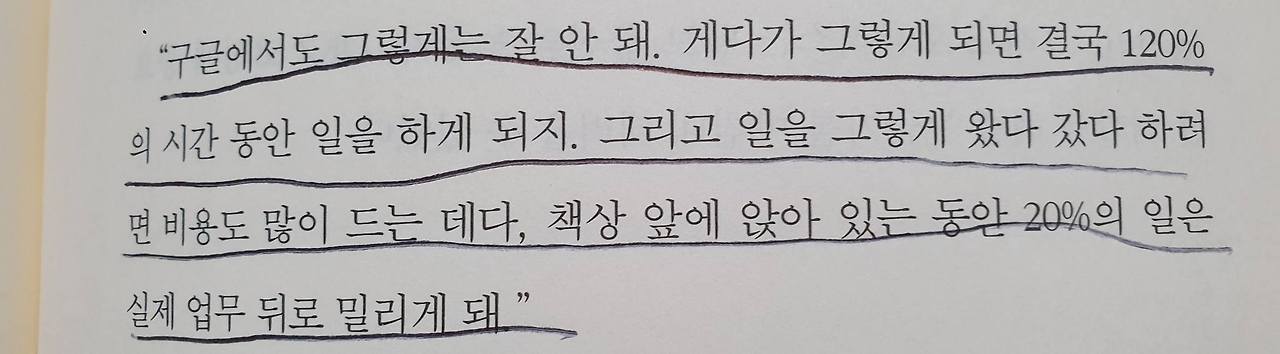 “구글에서도 그렇게는 잘 안 돼. 게다가 그렇게 되면 결국 120%
의 시간 동안 일을 하게 되지. 그리고 일을 그렇게 왔다 갔다 하려
면 비용도 많이 드는 데다, 책상 앞에 앉아 있는 동안 20%의 일은
실제 업무 뒤로 밀리게 돼 ”